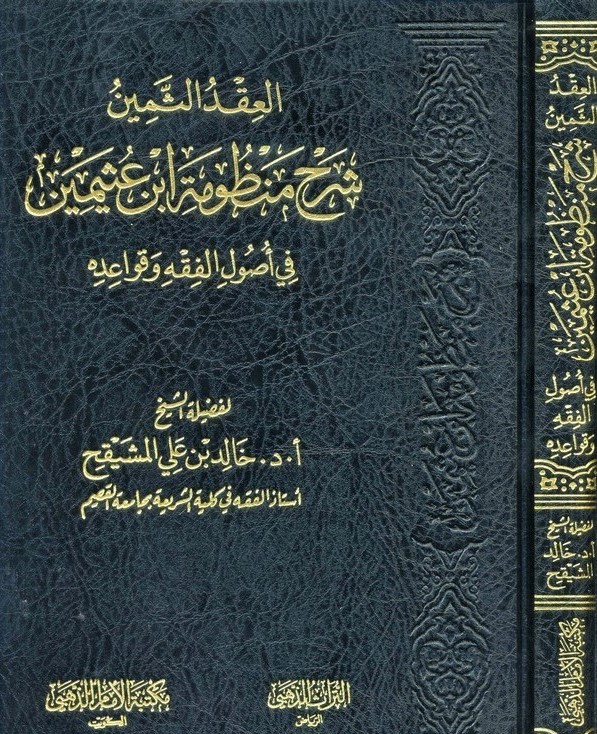 العِقْدُ الثَّمِينُ
شَرْحُ مَنْظُومَةِ ابْنِ عُثَيْمِين
فِي أُصُولِ الفِقْهِ وَقَوَاعِدِهِ
لفضيلة الشيخ
أ.د. خَالِد بْن عَلِي المشَيْقِح
أستاذ الفقه في كلية الشريعة بجامعة القصيم
التراث الذهبي
الرياض
مكتبة الإمام الذهبي
الكويت
العِقْدُ
الثَّمِينُ
شَرْحُ مَنْظُومَةِ ابْنِ عُثَيْمِين
فِي أُصُولِ
الفِقْهِ
وَقَوَاعِدِهِ
لفضيلة الشيخ
أ.د. خَالِد
المشَيْقِح
مكتبة الإمام الذهبي